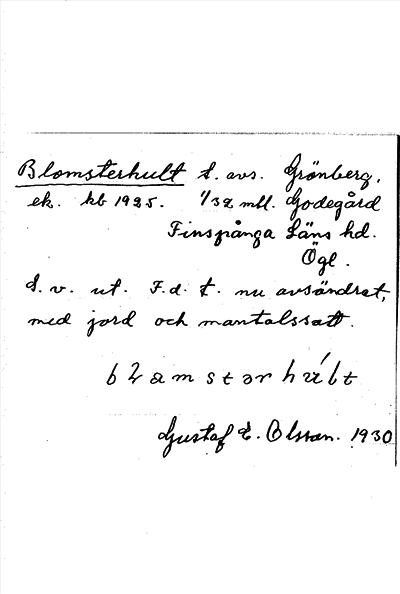 Blomsterhult t. avs. Grönberg,
ek. kb 1925. 1/32 mtl. Godegård
Finspånga Läns hd.
Ögl.
S. v. ut. F. d. t. nu avsöndrat,
med jord och mantalssatt.
Gustaf E. Olsson. 1930